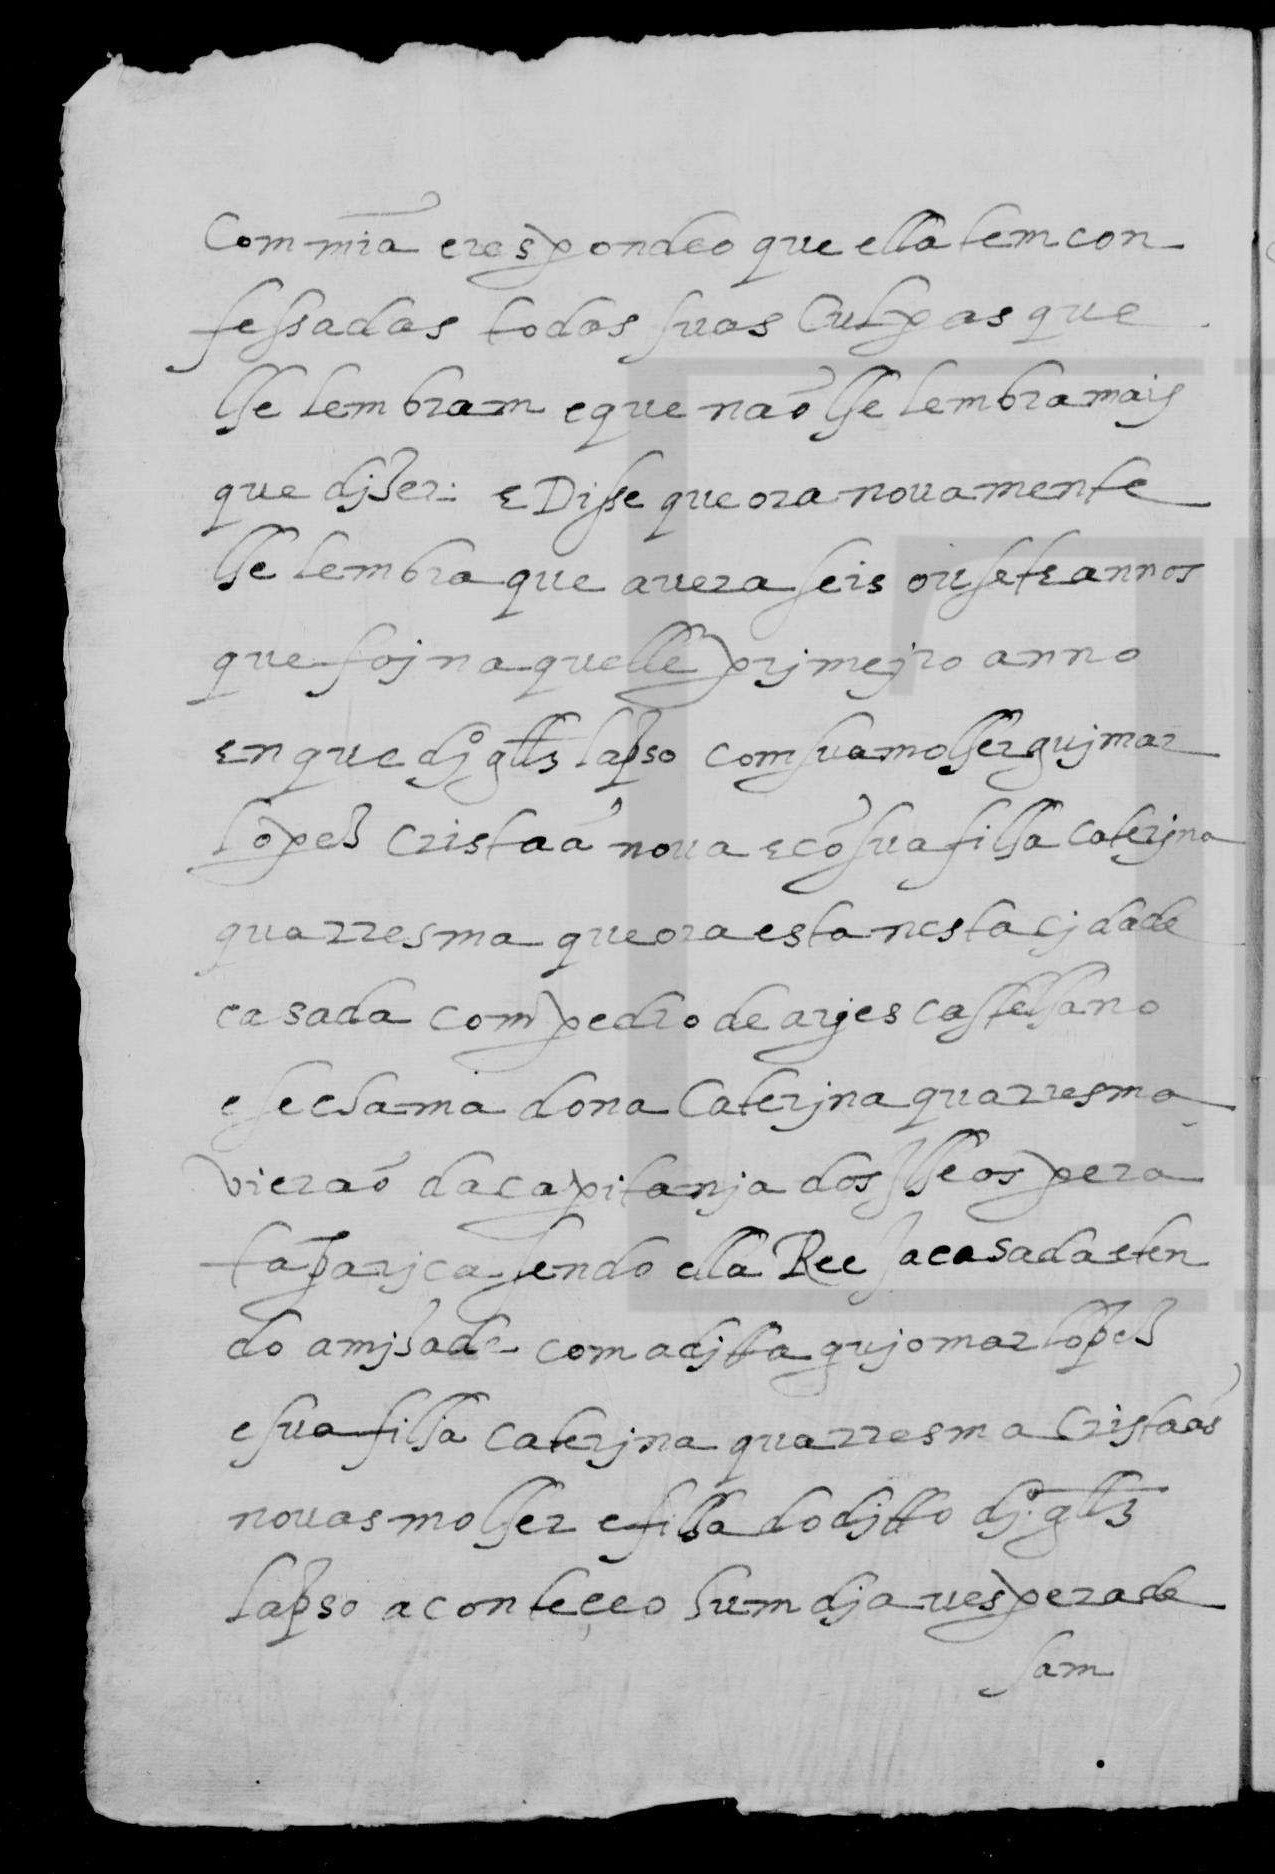 Com mia᷉ e respondeo que ella tem con
fessadas todas suas Culpas que
lhe lembram e que naõ lhe lembra mais
que djzer: E Disse que ora novamente
lhe lembra que avera seis ou sete annos
que foj naquelle primejro anno
En que djº glz̃ lapso com sua molher gujmar
lopez cristaã nova E cõ sua filha Caterjna
quarresma que ora esta nesta cjdade
casada com pedro de arjes castelhano
e se chama dona Caterjna quarresma
vieraõ da capitanja dos Ilheos pera
taparjca sendo ella Ree ja casada e ten
do amjzade com a djtta gujomar lopez
e sua filha Caterjna quarresma Cristaãs
novas molher e filha do djtto djº glz̃
lapso aconteçeo hum dja vespera de
sam